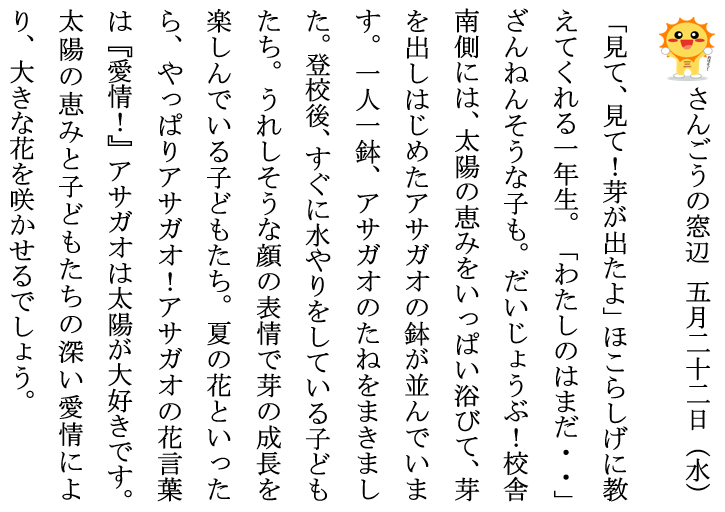 さんごうの窓辺 五月二十二日（水）
「見て、見て！芽が出たよ」ほこらしげに教
えてくれる一年生。「わたしのはまだ・・」
ざんねんそうな子も。だいじょうぶ！校舎
南側には、太陽の恵みをいっぱい浴びて、芽
を出しはじめたアサガオの鉢が並んでいま
す。一人一鉢、アサガオのたねをまきまし
た。登校後、すぐに水やりをしている子ども
たち。うれしそうな顔の表情で芽の成長を
楽しんでいる子どもたち。夏の花といった
ら、やっぱりアサガオ！アサガオの花言葉
は『愛情！』アサガオは太陽が大好きです。
太陽の恵みと子どもたちの深い愛情によ
り、大きな花を咲かせるでしょう。